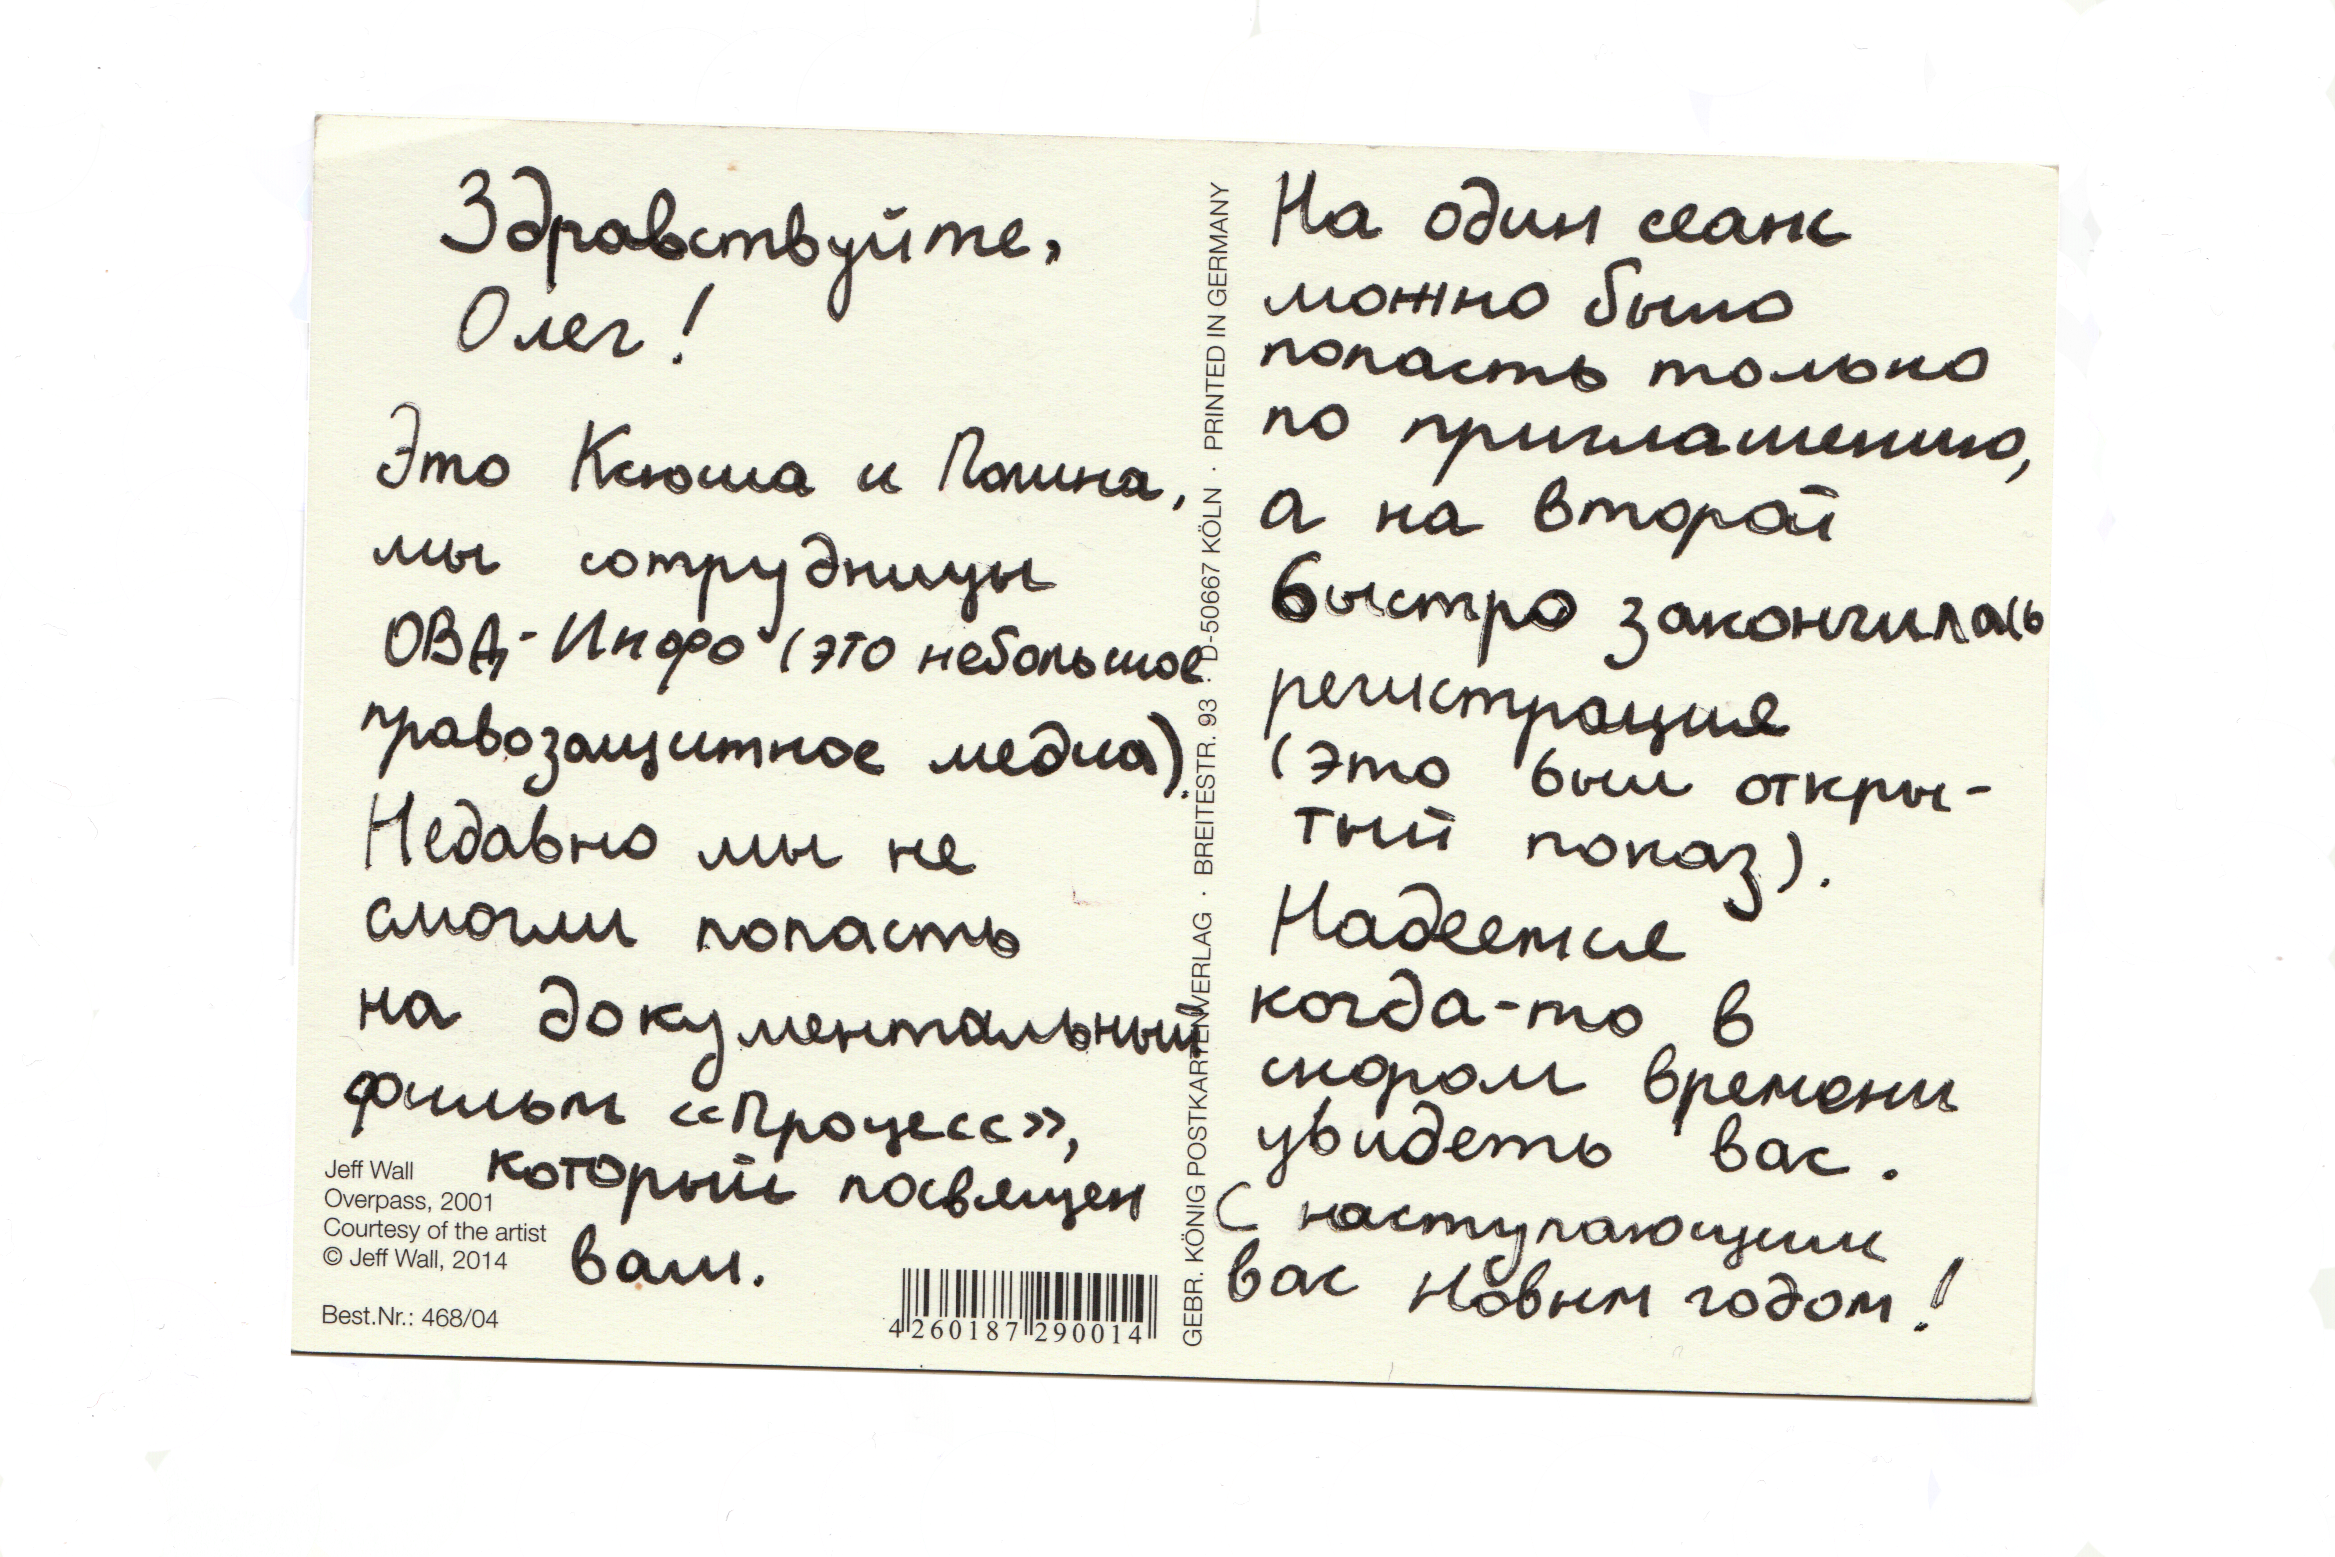 Здравствуйте,
Олег!
Это Ксюша и Полина,
мы сотрудницы
ОВД-Инфо (это небольшое
правозащитное медиа).
Недавно мы не
смогли попасть
на документальный
фильм «Процесс»,
который посвящен
вам.
Jeff Wall
Overpass, 2001
Courtesy of the artist
© Jeff Wall, 2014
Best.Nr.: 468/04
4 260187 290014
GEBR. KÖNIG POSTKARTENVERLAG · BREITESTR. 93 · D-50667 KÖLN · PRINTED IN GERMANY
На один сеанс
можно было
попасть только
по приглашению,
а на второй
быстро закончилась
регистрация
(это был откры-
тый показ).
Надеемся
когда-то в
скором времени
увидеть вас.
С наступающим
вас Новым годом!